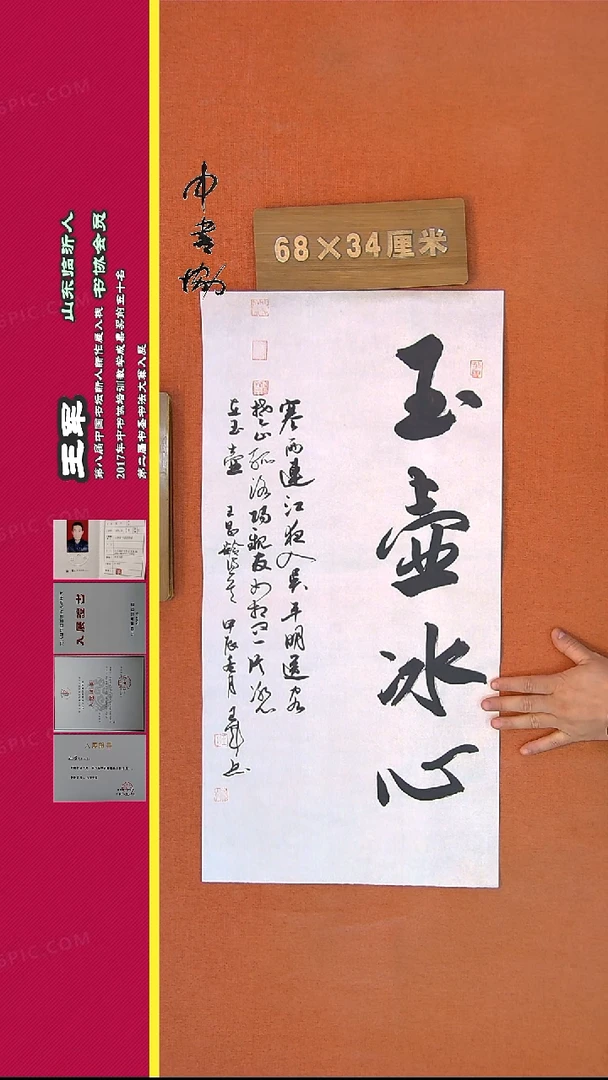 中书协
68×34厘米
玉壺冰心
寒雨連江夜入吴平明送客
楚山孤洛陽親友如相问一片冰心
在玉壺 王昌齡诗 甲辰 月 王軍书
王军
山东临沂人 书协会员
第八届中国书坛新人新作展入展
2017年中书协培训教学成果展前五十名
第二届书圣书法大赛入展
入展证书
SPIC.COM